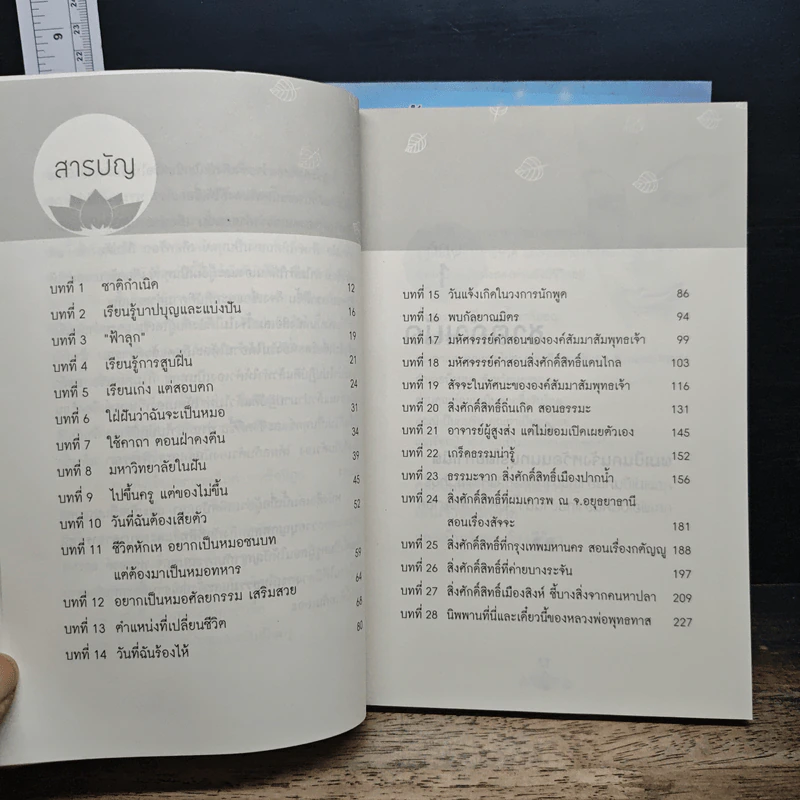 สารบัญ
บทที่ 1 ชาติกำเนิด 12
บทที่ 2 เรียนรู้บาปบุญและแบ่งปัน 16
บทที่ 3 "ฟ้าลุก" 19
บทที่ 4 เรียนรู้การสูบฝิ่น 21
บทที่ 5 เรียนเก่ง แต่สอบตก 24
บทที่ 6 ใฝ่ฝันว่าฉันจะเป็นหมอ 31
บทที่ 7 ใช้คาถา ตอนฝ่าดงตีน 34
บทที่ 8 มหาวิทยาลัยในฝัน 39
บทที่ 9 ไปขึ้นครู แต่ของไม่ขึ้น 45
บทที่ 10 วันที่ฉันต้องเสียตัว 52
บทที่ 11 ชีวิตหักเห อยากเป็นหมอชนบท
แต่ต้องมาเป็นหมอทหาร 59
บทที่ 12 อยากเป็นหมอศัลยกรรม เสริมสวย 64
บทที่ 13 ตำแหน่งที่เปลี่ยนชีวิต 68
บทที่ 14 วันที่ฉันร้องไห้ 80
บทที่ 15 วันแจ้งเกิดในวงการนักพูด 86
บทที่ 16 พบกัลยาณมิตร 94
บทที่ 17 มหัศจรรย์คำสอนขององค์สัมมาสัมพุทธเจ้า 99
บทที่ 18 มหัศจรรย์คำสอนสิ่งศักดิ์สิทธิ์แดนไกล 103
บทที่ 19 สัจจะในทัศนะขององค์สัมมาสัมพุทธเจ้า 116
บทที่ 20 สิ่งศักดิ์สิทธิ์ถิ่นเกิด สอนธรรมะ 131
บทที่ 21 อาจารย์ผู้สูงส่ง แต่ไม่ยอมเปิดเผยตัวเอง 145
บทที่ 22 เกร็ดธรรมน่ารู้ 152
บทที่ 23 ธรรมะจาก สิ่งศักดิ์สิทธิ์เมืองปากน้ำ 156
บทที่ 24 สิ่งศักดิ์สิทธิ์ที่ผมเคารพ ณ จ.อยุธยาธานี
สอนเรื่องสัจจะ 181
บทที่ 25 สิ่งศักดิ์สิทธิ์ที่กรุงเทพมหานคร สอนเรื่องกตัญญู 188
บทที่ 26 สิ่งศักดิ์สิทธิ์ที่ค่ายบางระจัน 197
บทที่ 27 สิ่งศักดิ์สิทธิ์เมืองสิงห์ ชี้บางสิ่งจากคนหาปลา 209
บทที่ 28 นิพพานที่นี่และเดี๋ยวนี้ของหลวงพ่อพุทธทาส 227